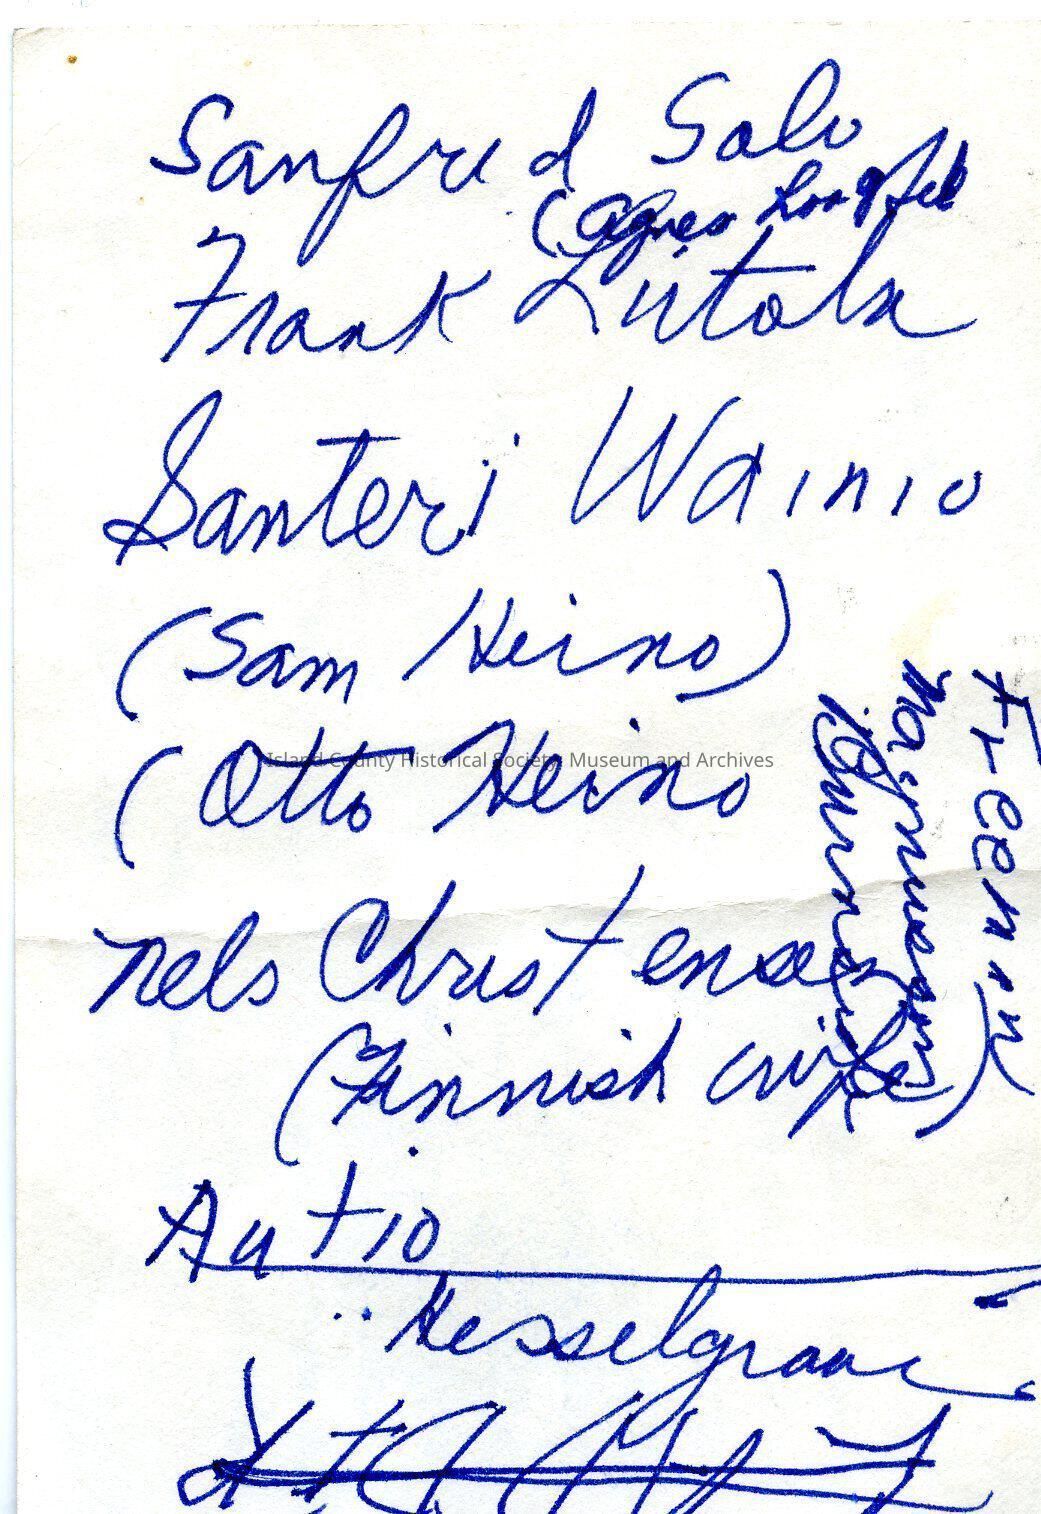 Sanfred Salo
(Agnes
Frank Lutola
Santeri Wainio
(Sam Heino)
(Otto Heino
Nels Christensen
(Finnish wife)
Autio
Hesselgrave
Freemn
Island County Historical Society Museum and Archives